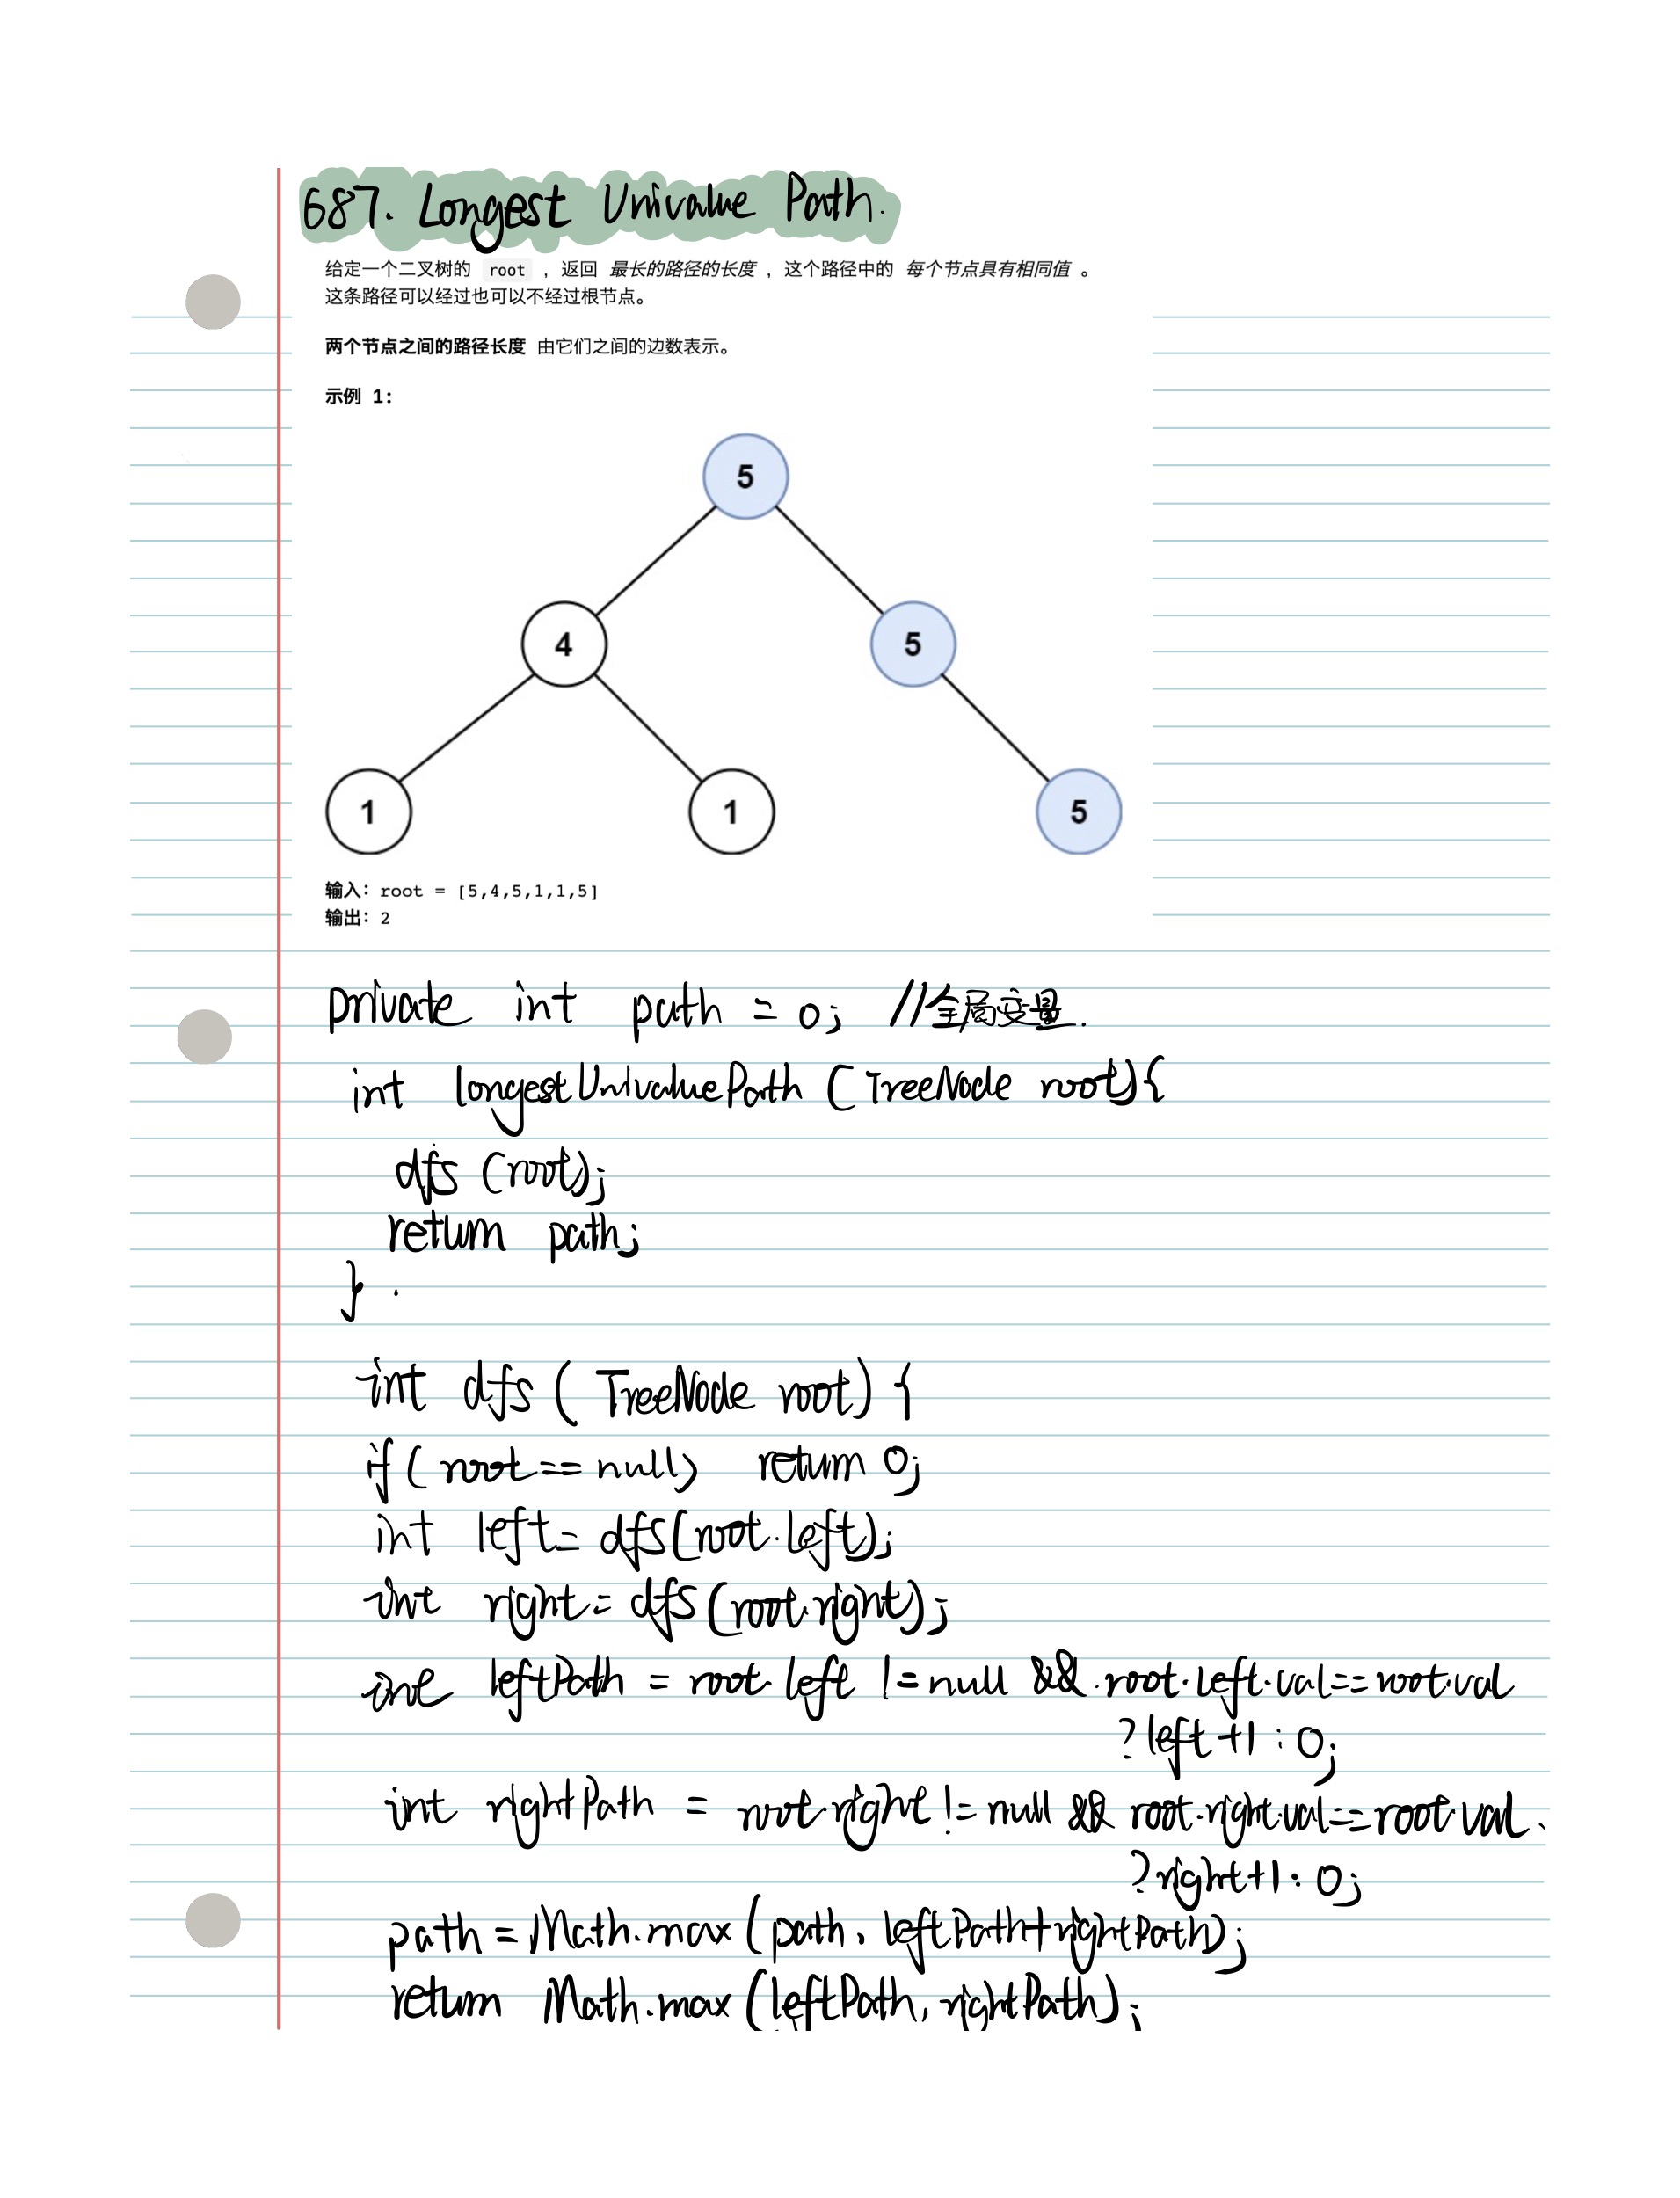 687. Longest Univalue Path.
给定一个二叉树的 root ，返回 最长的路径的长度 ，这个路径中的 每个节点具有相同值 。
这条路径可以经过也可以不经过根节点。
两个节点之间的路径长度 由它们之间的边数表示。
示例 1:
5
4 5
1 1 5
输入：root = [5,4,5,1,1,5]
输出：2
private int path = 0; //全局变量.
int longestUnivaluePath (TreeNode root){
dfs (root);
return path;
} .
int dfs ( TreeNode root) {
if ( root == null) return 0;
int left = dfs(root.left);
int right = dfs (root.right);
int leftPath = root.left != null && root.left.val == root.val
? left +1 : 0;
int rightPath = root.right != null && root.right.val == root.val.
? right+1 : 0;
path = Math.max (path, leftPath+rightPath);
return Math.max (leftPath, rightPath);